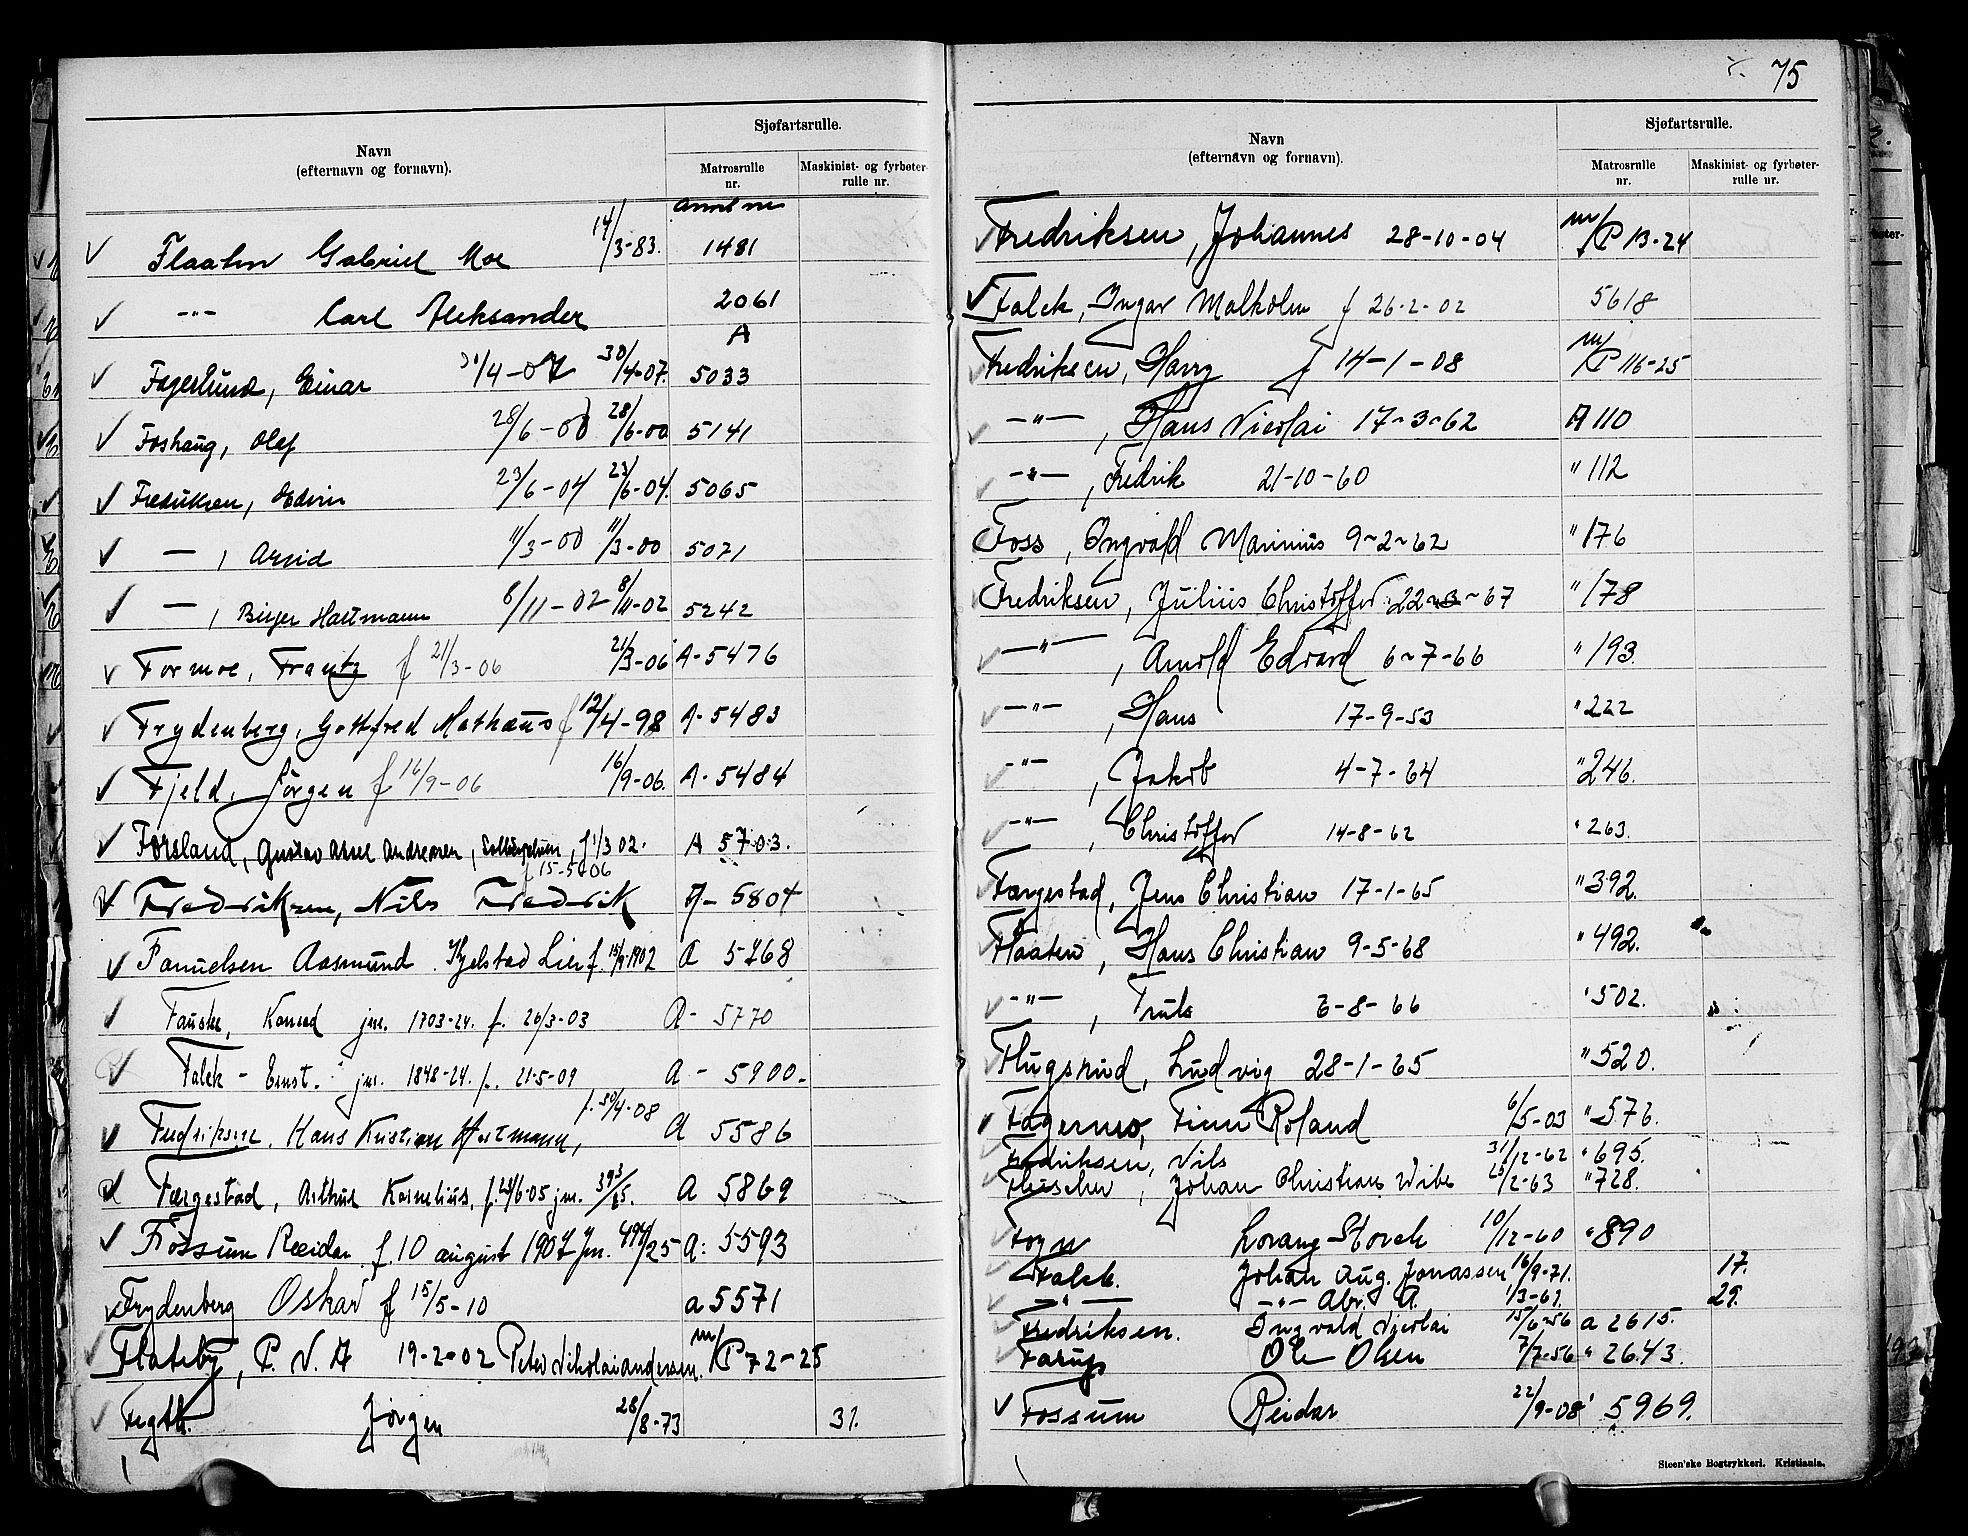 Navn
(efternavn og fornavn).
Sjøfartsrulle.
Matrosrulle nr.
Maskinist- og fyrbøter-rulle nr.
Annet nr
Flaaten Gabriel Moe 14/3-83. 1481
-"- Carl Aleksander 2061
A
Fagerlund, Einar 31/4-07 30/4-07. 5033
Foshaug, Olaf 28/6-00 28/6-00 5141
Fredriksen, Edvin 23/6-04 23/6-04. 5065
— , Arvid 11/3-00 11/3-00 5071
— , Birger Hartmann 8/11-02 8/11-02 5242
Formoe, Frantz f 21/3-06 21/3-06 A-5476
Frydenberg, Gottfred Mathæus f 12/4-98 A-5483
Fjeld, Jörgen f 16/9-06 16/9-06. A-5484
Forsland, Gustav Arne Andreasen, f 1/3 02. A 5703.
f 15-5-06
Fredriksen, Nils Fredrik A- 5804
Fanuelsen Aasmund. Kjelstad Lier f. 1902 A 5768
Fauske, Konrad jnr. 1703-24. f. 26/3-03 A- 5770
Falck - Ernst. jnr. 1848-24. f. 21-5-09 A - 5900-
f. 30/4-08
Fredriksen, Hans Kristian Hartmann, A 5586
Færgestad, Arthur Kornelius, f. 28/6-05 jnr. 393/25. A 5869
Fossum Reidar f. 10 august 1907 Jnr. 494/25 A: 5593
Frydenberg Oskar f 15/5-10 a 5571
Flateby, P. N. A 19-2-02 Peter Nikolai Andersen. m/P 72-25
Fegth. Jørgen 28/8-73 31.
75
Navn
(efternavn og fornavn).
Sjøfartsrulle.
Matrosrulle nr.
Maskinist- og fyrbøter-rulle nr.
Fredriksen, Johannes 28-10-04 m/P 13-24
Falck, Ingar Malkolm f 26-2-02 5618
Fredriksen, Harry f 14-1-08 m/P 116-25
-"- , Hans Nicolai 17-3-62 A 110
-"- , Fredrik 21-10-60 " 112
Foss, Ingvald Marinius 9-2-62 " 176
Fredriksen, Julius Christoffer 22-3-67 " 178
-"- , Arnold Edvard 6-7-66 " 193.
-"- , Hans 17-9-53 " 222
-"- , Jakob 4-7-64 " 246.
-"- , Christoffer 14-8-62 " 263.
Færgestad, Jens Christian 17-1-65 " 392.
Flaaten, Hans Christian 9-5-68 " 492.
-"- , Truls 3-8-66 " 502.
Flugsrud, Ludvig 28-1-65 " 520.
Fagernes, Finn Roland 6/5-03 " 576.
Fredriksen, Nils 31/12-62 " 695.
Fleischer, Johan Christian Wibe 25/2-63 " 728.
Foyn Lorang Storck 10/12-60 " 890
Falck. Johan Aug. Jonassen 16/9-71. 17.
-"- -"- Abr. A. 1/3-61. 29.
Fredriksen. Ingvald Nicolai 15/6-56 a 2615.
Farup Ole Olsen 7/7-56 " 2643.
Fossum Reidar 22/9-08 " 5969.
Steen'ske Bogtrykkeri. Kristiania.